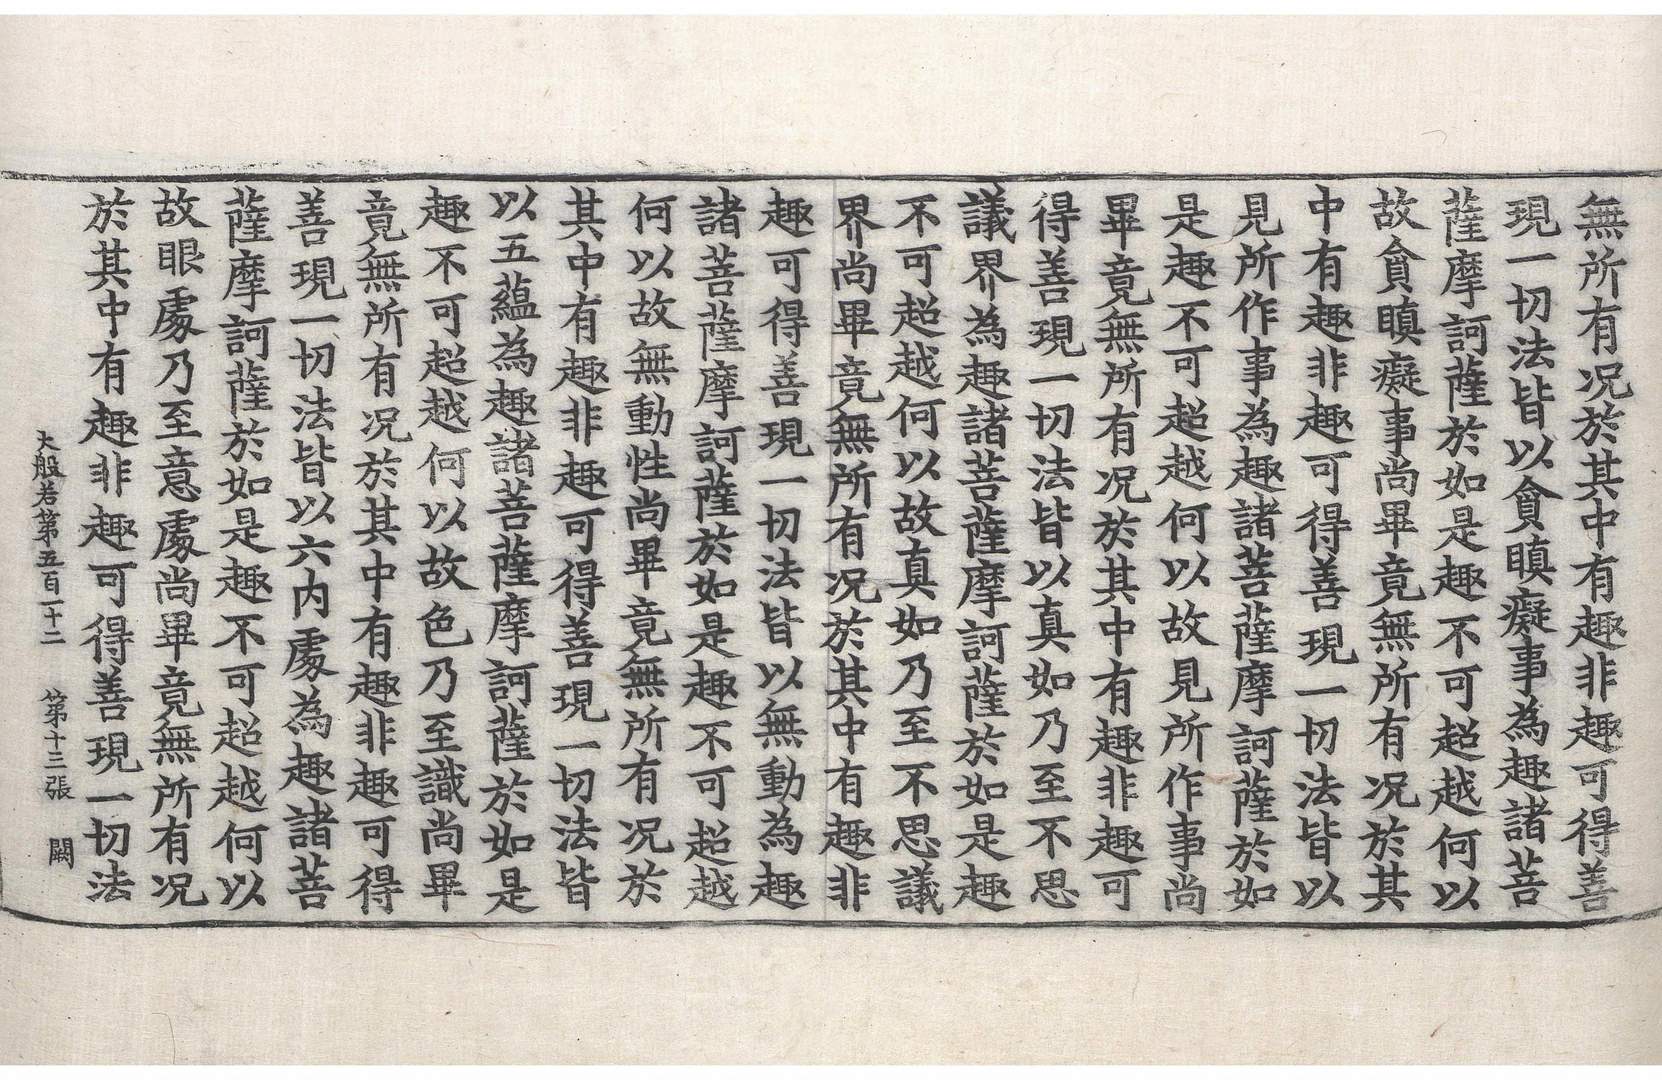 無所有况於其中有趣非趣可得善
現一切法皆以貪瞋癡事為趣諸菩
薩摩訶薩於如是趣不可超越何以
故貪瞋癡事尚畢竟無所有况於其
中有趣非趣可得善現一切法皆以
見所作事為趣諸菩薩摩訶薩於如
是趣不可超越何以故見所作事尚
畢竟無所有况於其中有趣非趣可
得善現一切法皆以真如乃至不思
議界為趣諸菩薩摩訶薩於如是趣
不可超越何以故真如乃至不思議
界尚畢竟無所有况於其中有趣非
趣可得善現一切法皆以無動為趣
諸菩薩摩訶薩於如是趣不可超越
何以故無動性尚畢竟無所有况於
其中有趣非趣可得善現一切法皆
以五蘊為趣諸菩薩摩訶薩於如是
趣不可超越何以故色乃至識尚畢
竟無所有况於其中有趣非趣可得
善現一切法皆以六內處為趣諸菩
薩摩訶薩於如是趣不可超越何以
故眼處乃至意處尚畢竟無所有况
於其中有趣非趣可得善現一切法
大般若第五百一十二 第十三張 闕